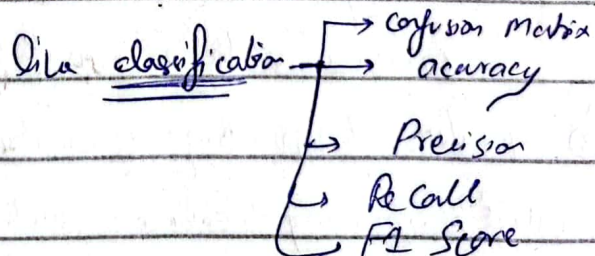 like classification → confusion Matrix
→ acuracy
→ Precision
→ Recall
F1 Score